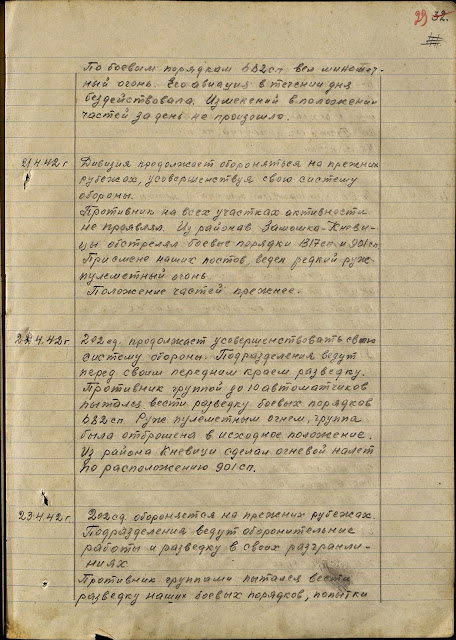 29 32.
По боевым порядкам 682сп вел минометный огонь. Его авиация в течении дня
бездействовала. Изменений в положении
частей за день не произошло.
21.4.42г Дивизия продолжает обороняться на прежних
рубежах, усовершенствуя свою систему
обороны.
Противник на всех участках активности
не проявлял. Из районав Замошка-Кневи-
цы обстрелял боевые порядки 1317сп и 901сп
При смене наших постов, веден редкий руж-
пулеметный огонь
Положение частей прежнее.
22.4.42г 202сд. продолжает усовершенствовать свою
систему обороны. Подразделения ведут
перед своим передним краем разведку.
Противник группой до 10 автоматчиков
пытался вести разведку боевых порядков
682сп Руж пулеметным огнем, группа
была отброшена в исходное положение.
Из района Кневици сделал огневой налет
по расположению 901сп.
23.4.42г 202сд. обороняется на прежних рубежах.
Подразделения ведут оборонительные
работы и разведку в своих разгранли-
ниях
Противник группами пытался вести
разведку наших боевых порядков, попытки